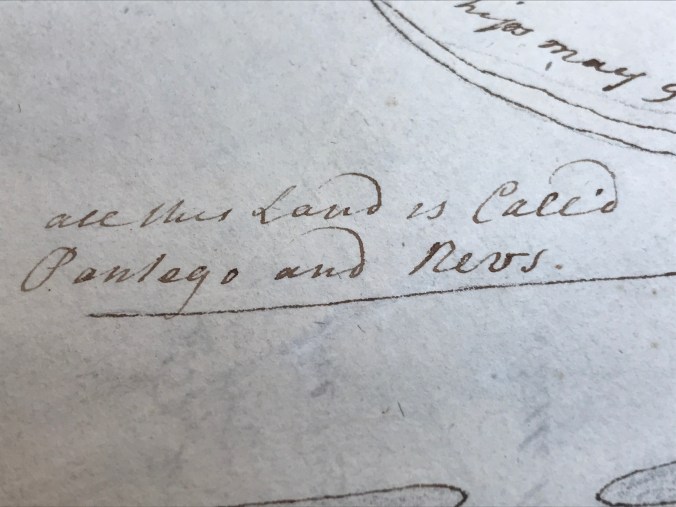 hips may g
all this Land is Call'd
Pantego and Nevs.